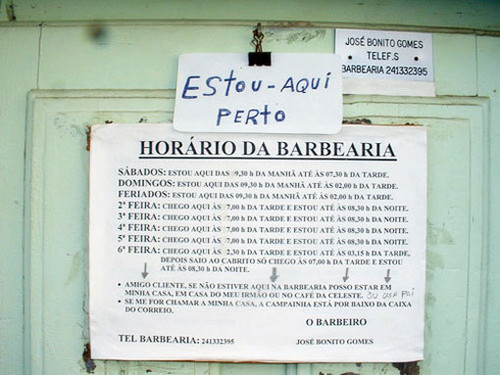 JOSÉ BONITO GOMES
• TELEF.S •
BARBEARIA 241332395
ESTOU-AQUI
PERTO
HORÁRIO DA BARBEARIA
SÁBADOS: ESTOU AQUI DAS 9,30 h DA MANHÃ ATÉ ÀS 07,30 h DA TARDE.
DOMINGOS: ESTOU AQUI DAS 09,30 h DA MANHÃ ATÉ ÀS 02,00 h DA TARDE.
FERIADOS: ESTOU AQUI DAS 09,30 h DA MANHÃ ATÉ ÀS 02,00 h DA TARDE.
2ª FEIRA: CHEGO AQUI ÀS 7,00 h DA TARDE E ESTOU ATÉ ÀS 08,30 h DA NOITE.
3ª FEIRA: CHEGO AQUI ÀS 7,00 h DA TARDE E ESTOU ATÉ ÀS 08,30 h DA NOITE.
4ª FEIRA: CHEGO AQUI ÀS 7,00 h DA TARDE E ESTOU ATÉ ÀS 08,30 h DA NOITE.
5ª FEIRA: CHEGO AQUI ÀS 7,00 h DA TARDE E ESTOU ATÉ ÀS 08,30 h DA NOITE.
6ª FEIRA: CHEGO AQUI ÀS 2,30 h DA TARDE E ESTOU ATÉ ÀS 03,15 h DA TARDE,
DEPOIS SAIO AO CABRITO SÓ CHEGO ÀS 07,00 h DA TARDE E ESTOU
ATÉ ÀS 08,30 h DA NOITE.
• AMIGO CLIENTE, SE NÃO ESTIVER AQUI NA BARBEARIA POSSO ESTAR EM
MINHA CASA, EM CASA DO MEU IRMÃO OU NO CAFÉ DA CELESTE. OU CASA PAI
• SE ME FOR CHAMAR A MINHA CASA, A CAMPAINHA ESTÁ POR BAIXO DA CAIXA
DO CORREIO.
O BARBEIRO
TEL BARBEARIA: 241332395 JOSÉ BONITO GOMES